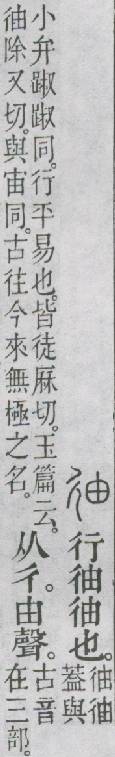 㣙
行㣙㣙也。
㣙㣙
蓋與
小弁踧踧同。行平易也。皆徒厤切。玉篇云。
㣙除又切。與宙同。古往今來無極之名。
从彳。由聲。
古音
在三部。